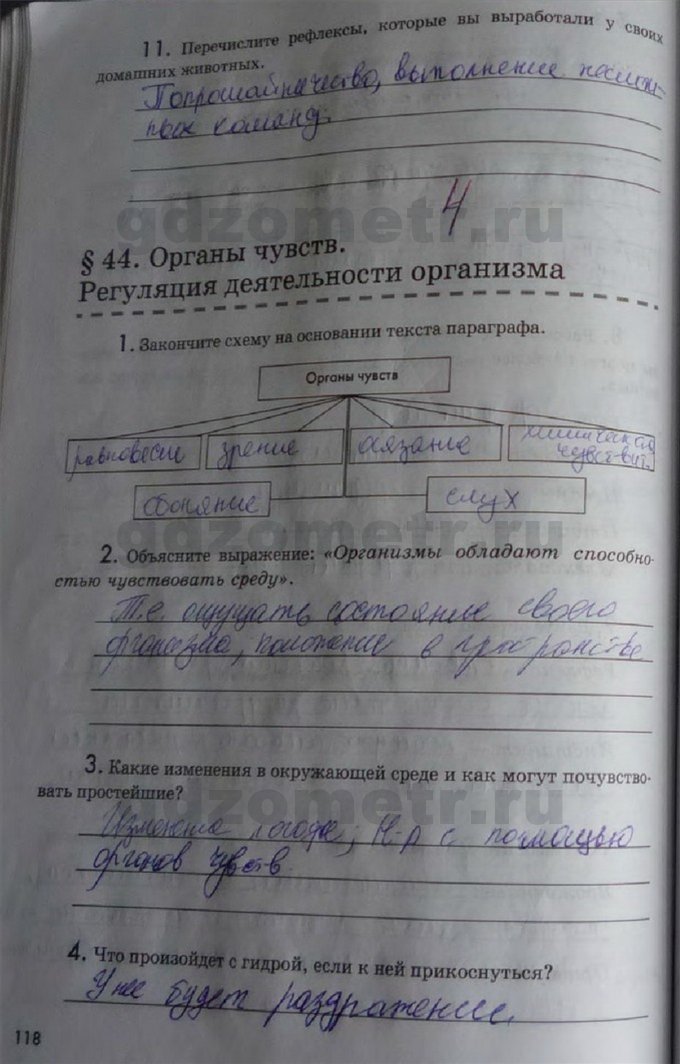 11. Перечислите рефлексы, которые вы выработали у своих
домашних животных.
Попрошайничество, выполнение
команд.
4
gdzometr.ru
§ 44. Органы чувств.
Регуляция деятельности организма
1. Закончите схему на основании текста параграфа.
Органы чувств
равновесие зрение осязание химическая
чувст-вит.
обоняние слух
gdzometr.ru
2. Объясните выражение: «Организмы обладают способно-
стью чувствовать среду».
Т.е. ощущать состояние своего
организма, положение в пространстве
3. Какие изменения в окружающей среде и как могут почувство-
вать простейшие?
gdzometr.ru
погоды, н-р с помощью
органов чувств.
4. Что произойдет с гидрой, если к ней прикоснуться?
У нее будет раздражение.
118